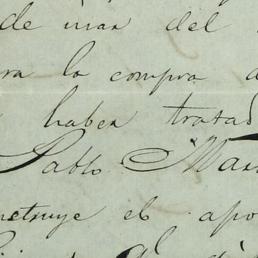 de man del
ra la compra d
haber tratad
Pablo Mar
netruye el apo